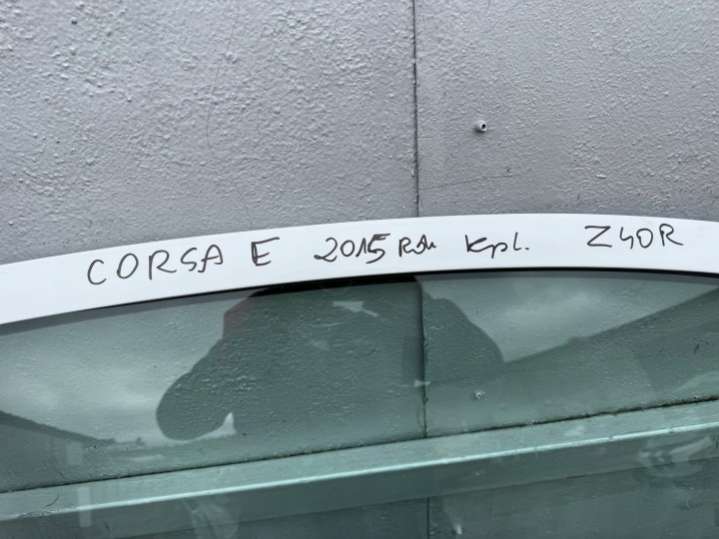 CORSA E 2015 Rok Kpl. Z40R